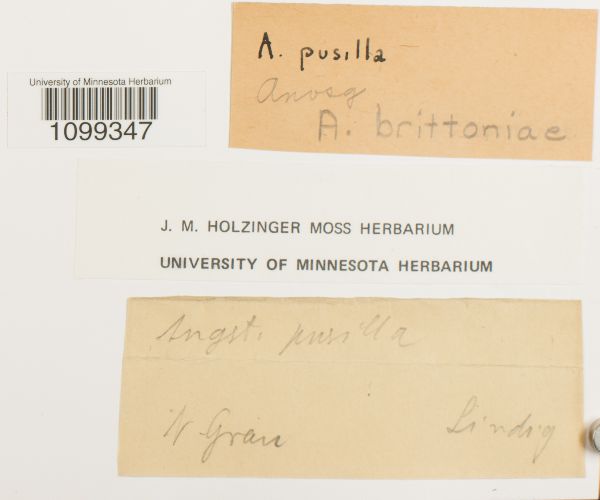 A. pusilla
Anosg
A. brittoniae
University of Minnesota Herbarium
1099347
J. M. HOLZINGER MOSS HERBARIUM
UNIVERSITY OF MINNESOTA HERBARIUM
Angst. pusilla
N Gran
Lindig